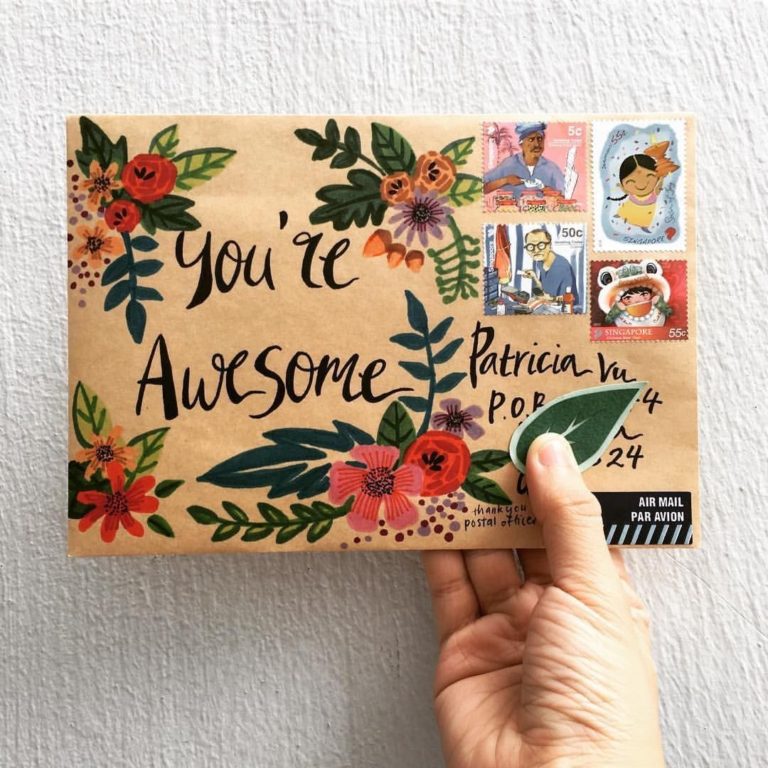 You're
Awesome
5c
SINGAPORE
50c
SINGAPORE
55c
Patricia Vu
P.O.B
4
24
thank you
postal office
AIR MAIL
PAR AVION